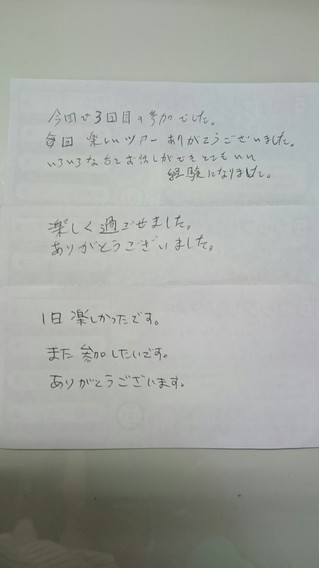 今回で3回目の参加でした。
毎回 楽しいツアー ありがとうございました。
いろいろな方とお話しができとてもいい
経験になりました。
楽しく過ごせました。
ありがとうございました。
1日 楽しかったです。
また 参加したいです。
ありがとうございます。